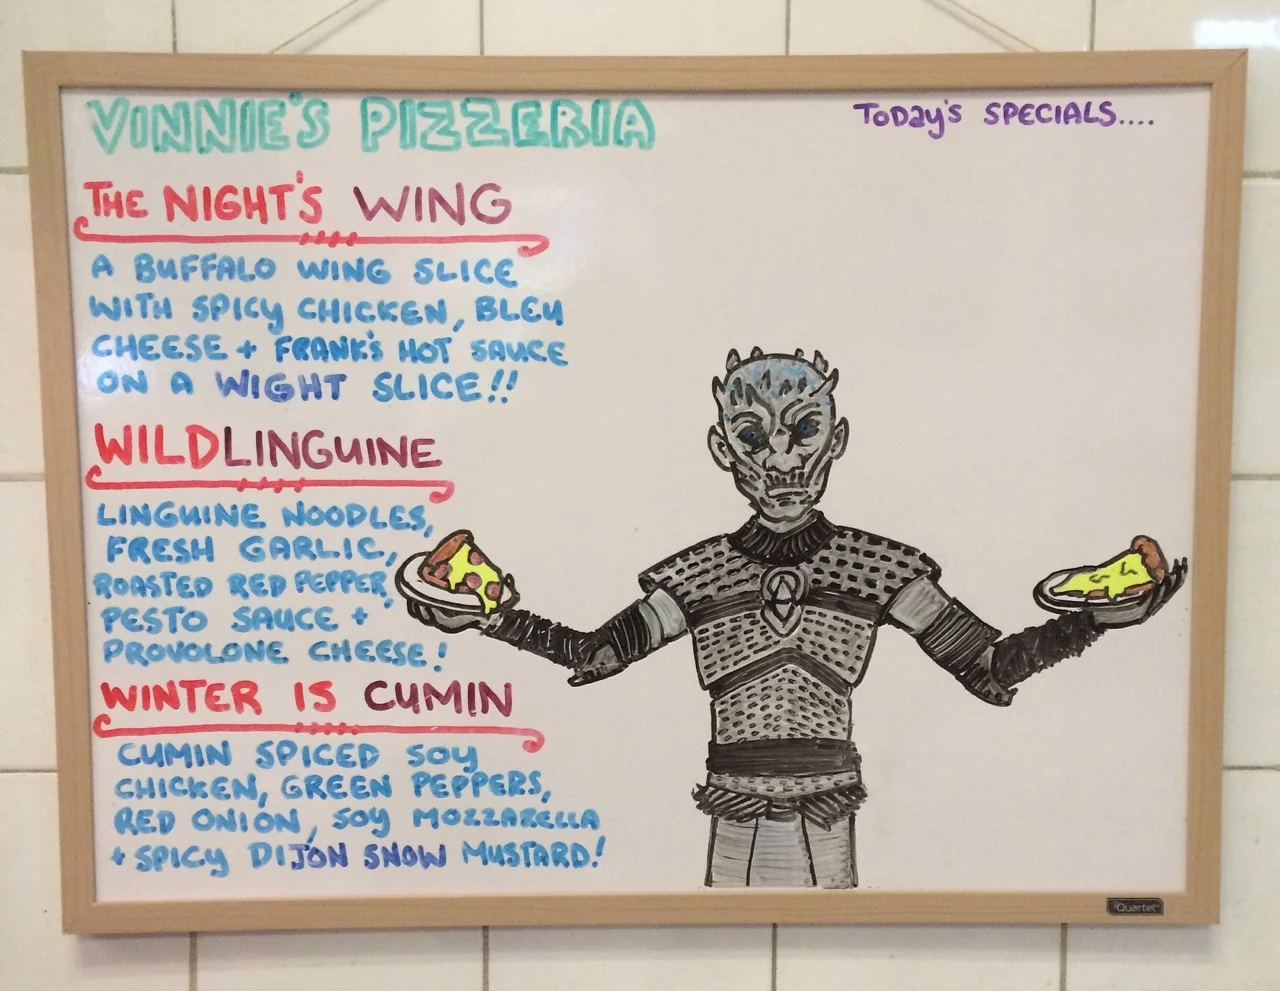 VINNIE'S PIZZERIA
TODAY'S SPECIALS....
THE NIGHT'S WING
A BUFFALO WING SLICE
WITH SPICY CHICKEN, BLEU
CHEESE + FRANK'S HOT SAUCE
ON A WIGHT SLICE!!
WILDLINGUINE
LINGUINE NOODLES,
FRESH GARLIC,
ROASTED RED PEPPER,
PESTO SAUCE +
PROVOLONE CHEESE!
WINTER IS CUMIN
CUMIN SPICED SOY
CHICKEN, GREEN PEPPERS,
RED ONION, SOY MOZZARELLA
+ SPICY DIJON SNOW MUSTARD!
Quartet